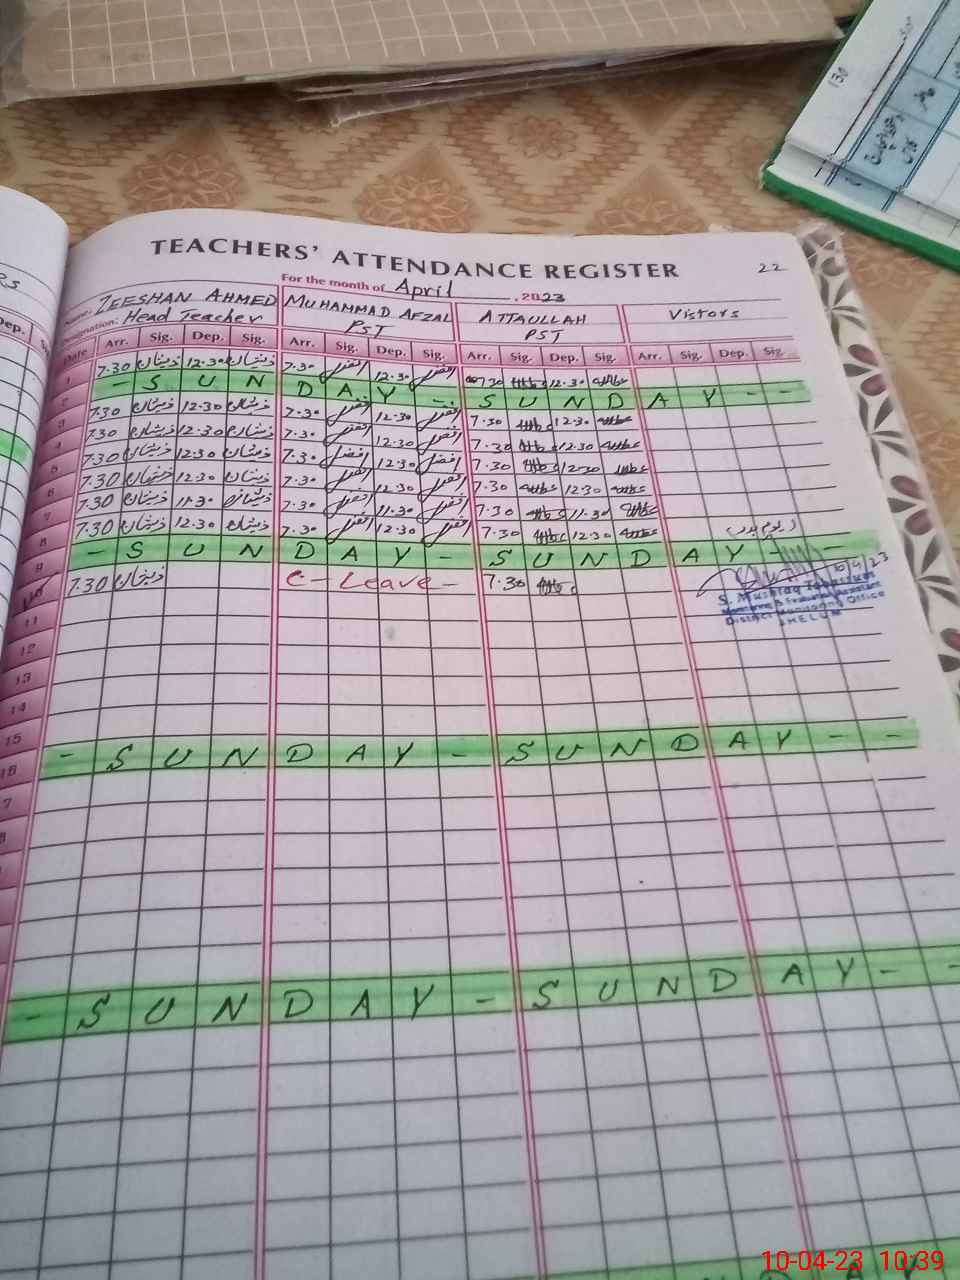 TEACHERS' ATTENDANCE REGISTER
22
For the month of April, 2023
Name: ZEESHAN AHMED MUHAMMAD AFZAL ATTAULLAH Vistors
Designation: Head Teacher PST PST
Date Arr. Sig. Dep. Sig. Arr. Sig. Dep. Sig. Arr. Sig. Dep. Sig. Arr. Sig. Dep. Sig.
1 7.30 ذیشان 12.30 ذیشان 7.30 افضل 12.30 افضل 7.30 12.30
2 - S U N D A Y - S U N D A Y - -
3 7.30 ذیشان 12.30 ذیشان 7.30 افضل 12.30 افضل 7.30 12.30
4 7.30 ذیشان 12.30 ذیشان 7.30 افضل 12.30 افضل 7.30 12.30
5 7.30 ذیشان 12.30 ذیشان 7.30 افضل 12.30 افضل 7.30 12.30
6 7.30 ذیشان 12.30 ذیشان 7.30 افضل 12.30 افضل 7.30 12.30
7 7.30 ذیشان 11.30 ذیشان 7.30 افضل 11.30 افضل 7.30 11.30
8 7.30 ذیشان 12.30 ذیشان 7.30 افضل 12.30 افضل 7.30 12.30
9 - S U N D A Y - S U N D A Y - -
10 7.30 ذیشان C - Leave - 7.30
10/4/23
S. Mushtaq Tabassum
Monitoring & Evaluation Assistant
District Monitoring Office
JHELUM
11
12
13
14
15
16 - S U N D A Y - S U N D A Y - -
7
8
- S U N D A Y - S U N D A Y - -
10-04-23 10:39